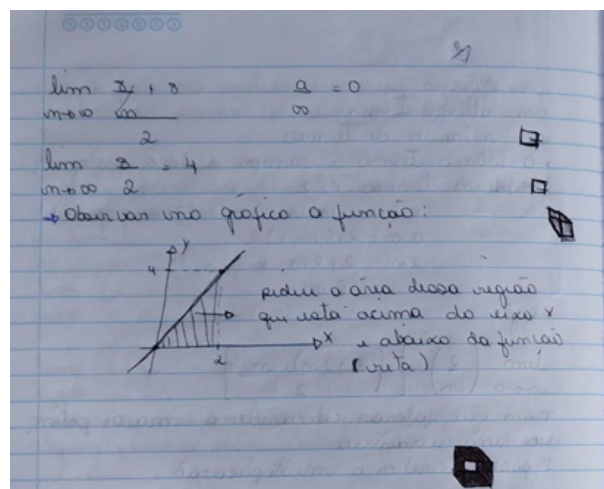 lim 8/n + 8    a/∞ = 0
n→∞ 2
lim 8/2 = 4
n→∞
→ Observar no gráfico a função:
y
4
pidiu a área dessa região
que está acima do eixo x
x e abaixo da função
2 (reta)